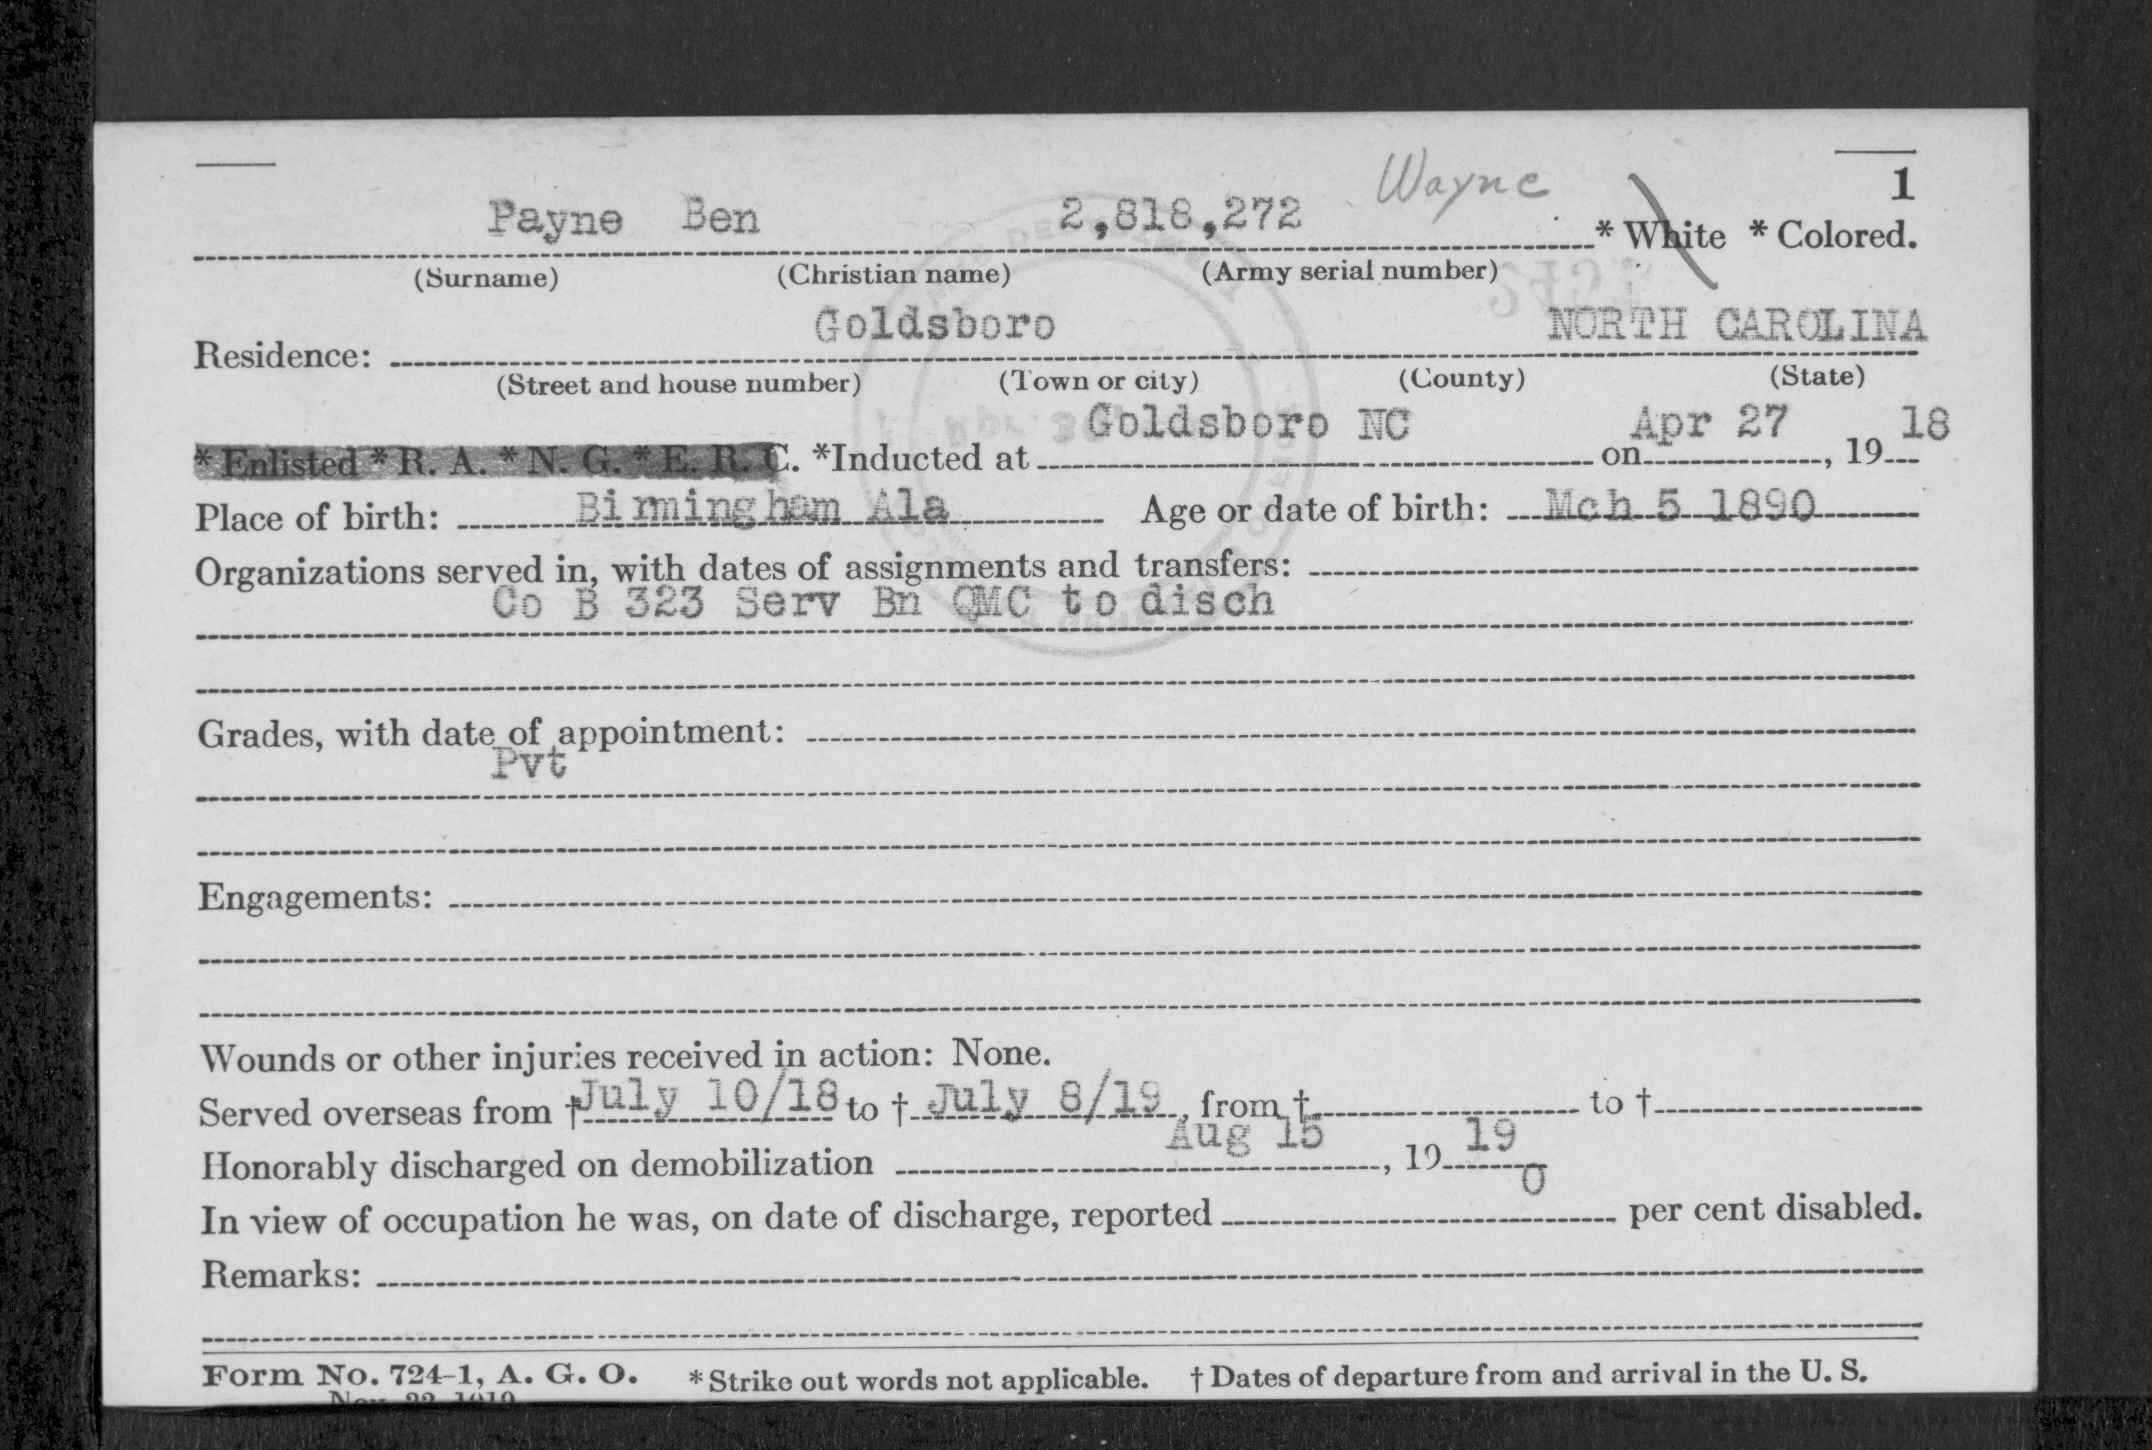 Wayne
1
Payne Ben 2,818,272 * White * Colored.
(Surname) (Christian name) (Army serial number)
Goldsboro NORTH CAROLINA
Residence:
(Street and house number) (Town or city) (County) (State)
Goldsboro NC Apr 27 18
* Enlisted * R. A. * N. G. * E. R. C. *Inducted at on , 19
Place of birth: Birmingham Ala Age or date of birth: Mch 5 1890
Organizations served in, with dates of assignments and transfers:
Co B 323 Serv Bn QMC to disch
Grades, with date of appointment:
Pvt
Engagements:
Wounds or other injuries received in action: None.
Served overseas from † July 10/18 to † July 8/19, from † to †
Aug 15 19
Honorably discharged on demobilization , 19
0
In view of occupation he was, on date of discharge, reported per cent disabled.
Remarks:
Form No. 724-1, A. G. O. * Strike out words not applicable. † Dates of departure from and arrival in the U. S.